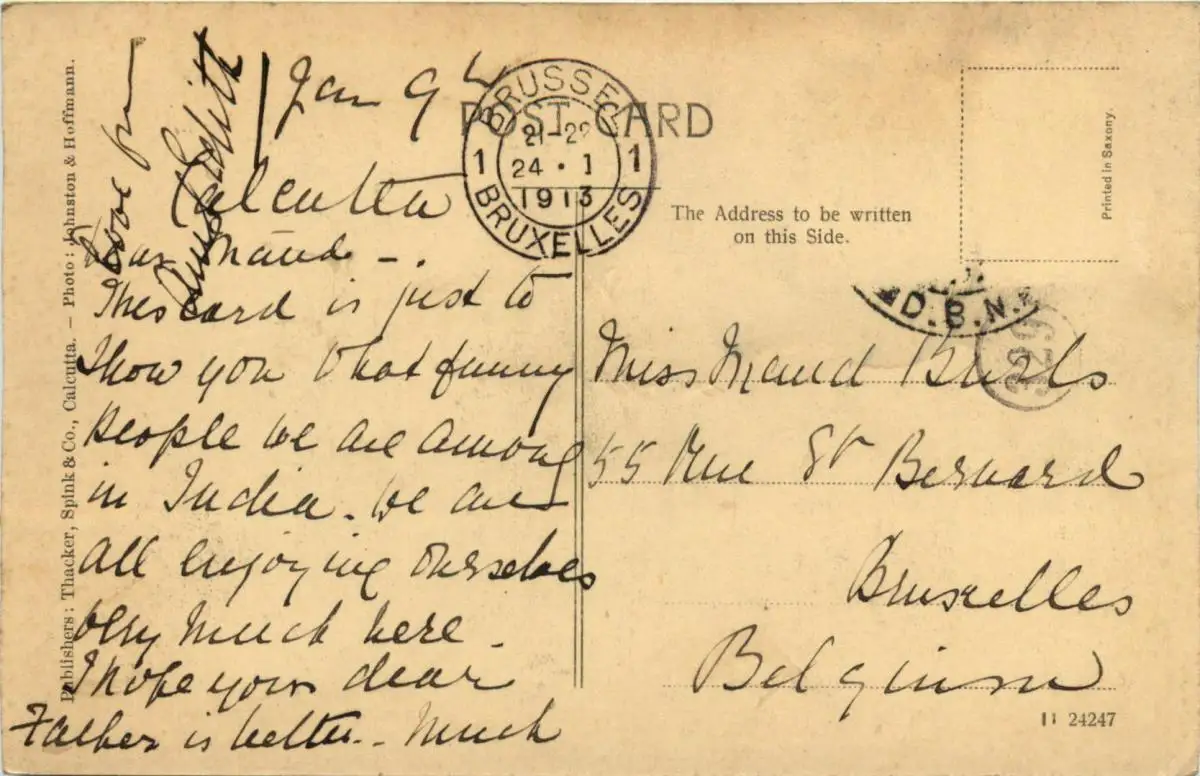 Jan 9th
Calcutta
Dear Maud -.
This card is just to
show you what funny
people we are among
in India. We are
all enjoying ourselves
very much here.
I hope your dear
Father is better. Much
love from
Aunt Edith
POST CARD
BRUSSEL
21-22
24 · 1
1913
1 1
BRUXELLES
The Address to be written
on this Side.
Printed in Saxony.
D.B.N.
329
Miss Maud
55 Rue St Bernard
Bruxelles
Belgium
11 24247
Publishers: Thacker, Spink & Co., Calcutta. – Photo: Johnston & Hoffmann.